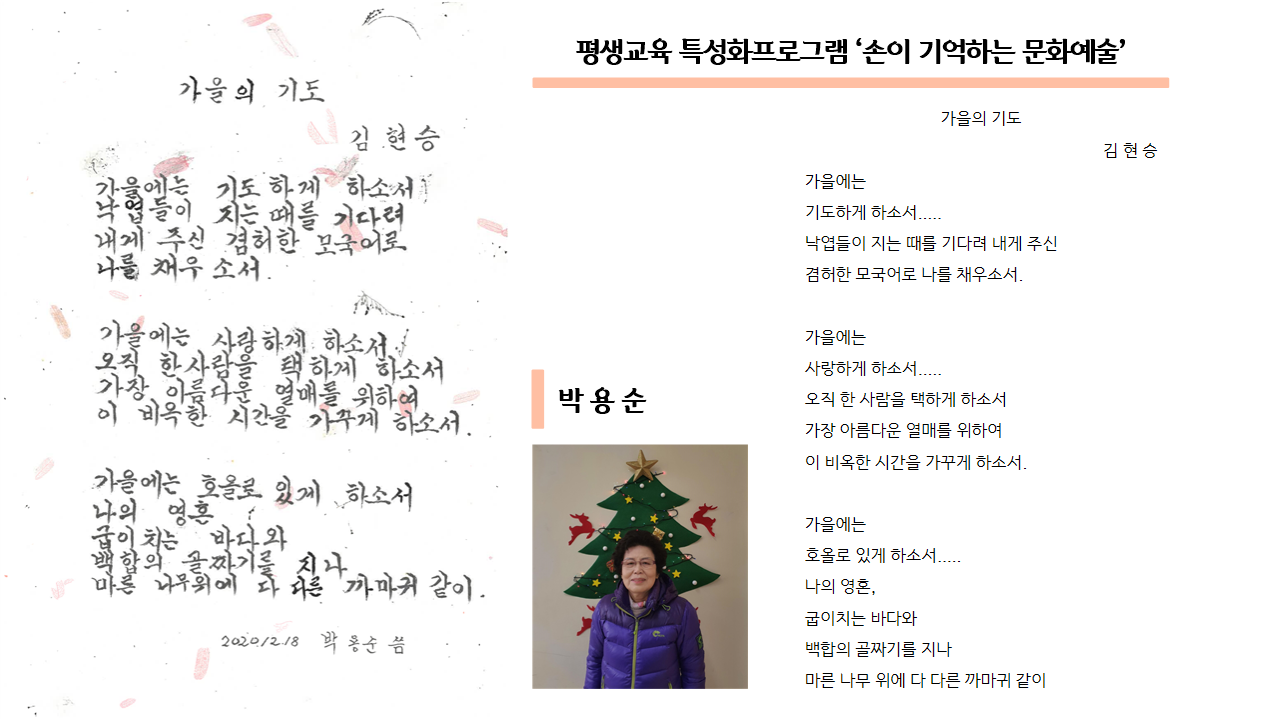 가을의 기도
김현승
가을에는 기도하게 하소서
낙엽들이 지는 때를 기다려
내게 주신 겸허한 모국어로
나를 채우소서.
가을에는 사랑하게 하소서.
오직 한사람을 택하게 하소서
가장 아름다운 열매를 위하여
이 비옥한 시간을 가꾸게 하소서.
가을에는 호올로 있게 하소서
나의 영혼
굽이치는 바다와
백합의 골짜기를 지나
마른 나무위에 다 다른 까마귀 같이.
2020.12.18 박용순 씀
평생교육 특성화프로그램 ‘손이 기억하는 문화예술’
박 용 순
가을의 기도
김 현 승
가을에는
기도하게 하소서.....
낙엽들이 지는 때를 기다려 내게 주신
겸허한 모국어로 나를 채우소서.
가을에는
사랑하게 하소서.....
오직 한 사람을 택하게 하소서
가장 아름다운 열매를 위하여
이 비옥한 시간을 가꾸게 하소서.
가을에는
호올로 있게 하소서.....
나의 영혼,
굽이치는 바다와
백합의 골짜기를 지나
마른 나무 위에 다 다른 까마귀 같이